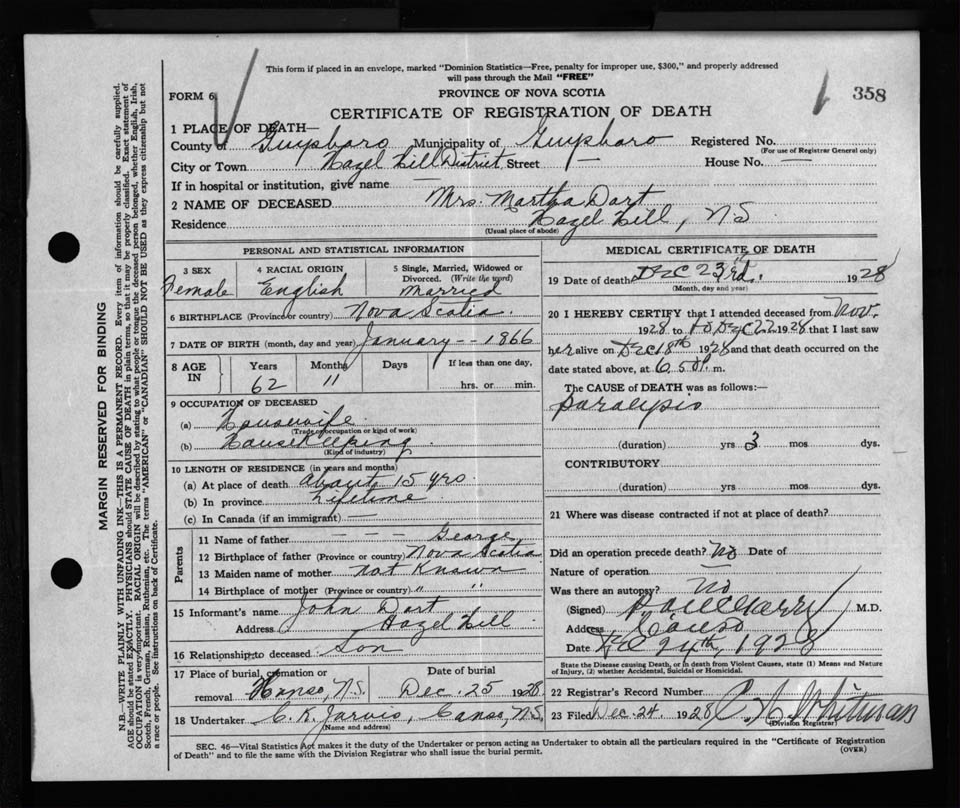 This form if placed in an envelope, marked "Dominion Statistics—Free, penalty for improper use, $300," and properly addressed
will pass through the Mail "FREE"
FORM 6
PROVINCE OF NOVA SCOTIA
358
CERTIFICATE OF REGISTRATION OF DEATH
1 PLACE OF DEATH—
County of Guysboro Municipality of Guysboro Registered No.
(For use of Registrar General only)
City or Town Hazel Hill District Street — House No. —
If in hospital or institution, give name —
2 NAME OF DECEASED Mrs. Martha Dort
Residence Hazel Hill, NS
(Usual place of abode)
PERSONAL AND STATISTICAL INFORMATION
3 SEX
Female
4 RACIAL ORIGIN
English
5 Single, Married, Widowed or
Divorced. (Write the word)
Married
6 BIRTHPLACE (Province or country) Nova Scotia.
7 DATE OF BIRTH (month, day and year) January -- 1866
8 AGE
IN
Years
62
Months
11
Days
If less than one day,
hrs. or min.
9 OCCUPATION OF DECEASED
(a) Housewife
(Trade, occupation or kind of work)
(b) Housekeeping
(Kind of industry)
10 LENGTH OF RESIDENCE (in years and months)
(a) At place of death about 15 yrs.
(b) In province Lifetime
(c) In Canada (if an immigrant) —
Parents
11 Name of father — — — George
12 Birthplace of father (Province or country) Nova Scotia
13 Maiden name of mother Not Known
14 Birthplace of mother (Province or country) " "
15 Informant's name John Dort
Address Hazel Hill
16 Relationship to deceased Son
17 Place of burial, cremation or
removal Canso, N.S.
Date of burial
Dec. 25 1928
18 Undertaker C. K. Jarvis, Canso, N.S.
(Name and address)
MEDICAL CERTIFICATE OF DEATH
19 Date of death Dec 23rd. 1928
(Month, day and year)
20 I HEREBY CERTIFY that I attended deceased from Nov.
1928 to Dec 22 1928 that I last saw
her alive on Dec 18th 1928 and that death occurred on the
date stated above, at 6.5 P.m.
The CAUSE of DEATH was as follows:—
Paralysis
(duration) yrs 3 mos dys.
CONTRIBUTORY
(duration) yrs mos dys.
21 Where was disease contracted if not at place of death?
Did an operation precede death? No Date of
Nature of operation
Was there an autopsy? No
(Signed) M.D.
Address Canso
Date Dec 24th, 1928
State the Disease causing Death, or in death from Violent Causes, state (1) Means and Nature
of Injury, (2) whether Accidental, Suicidal or Homicidal.
22 Registrar's Record Number
23 Filed Dec. 24 1928 C H Whitman
(Division Registrar)
SEC. 46—Vital Statistics Act makes it the duty of the Undertaker or person acting as Undertaker to obtain all the particulars required in the "Certificate of Registration
of Death" and to file the same with the Division Registrar who shall issue the burial permit.
(OVER)
MARGIN RESERVED FOR BINDING
N.B.—WRITE PLAINLY WITH UNFADING INK—THIS IS A PERMANENT RECORD. Every item of information should be carefully supplied.
AGE should be stated EXACTLY. PHYSICIANS should STATE CAUSE OF DEATH in plain terms, so that it may be properly classified. Exact statement of
OCCUPATION is very important. RACIAL ORIGIN will be described by stating to what people or tongue the deceased person belonged, whether English, Irish,
Scotch, French, German, Russian, Ruthenian, etc. The terms "AMERICAN" or "CANADIAN" SHOULD NOT BE USED as they express citizenship but not
a race or people. See instructions on back of Certificate.